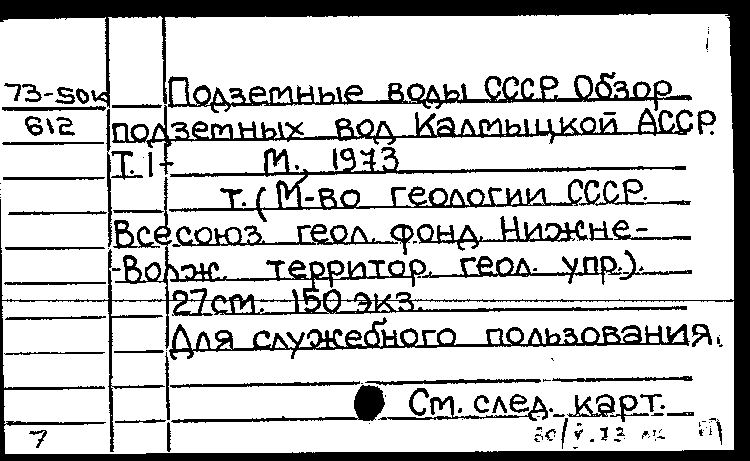 73-50к Подземные воды СССР. Обзор
612 подземных вод Калмыцкой АССР.
Т. 1- М., 1973
т. (М-во геологии СССР.
Всесоюз. геол. фонд. Нижне-
-Волж. территор. геол. упр.).
27см. 150 экз.
Для служебного пользования.
См. след. карт.
7